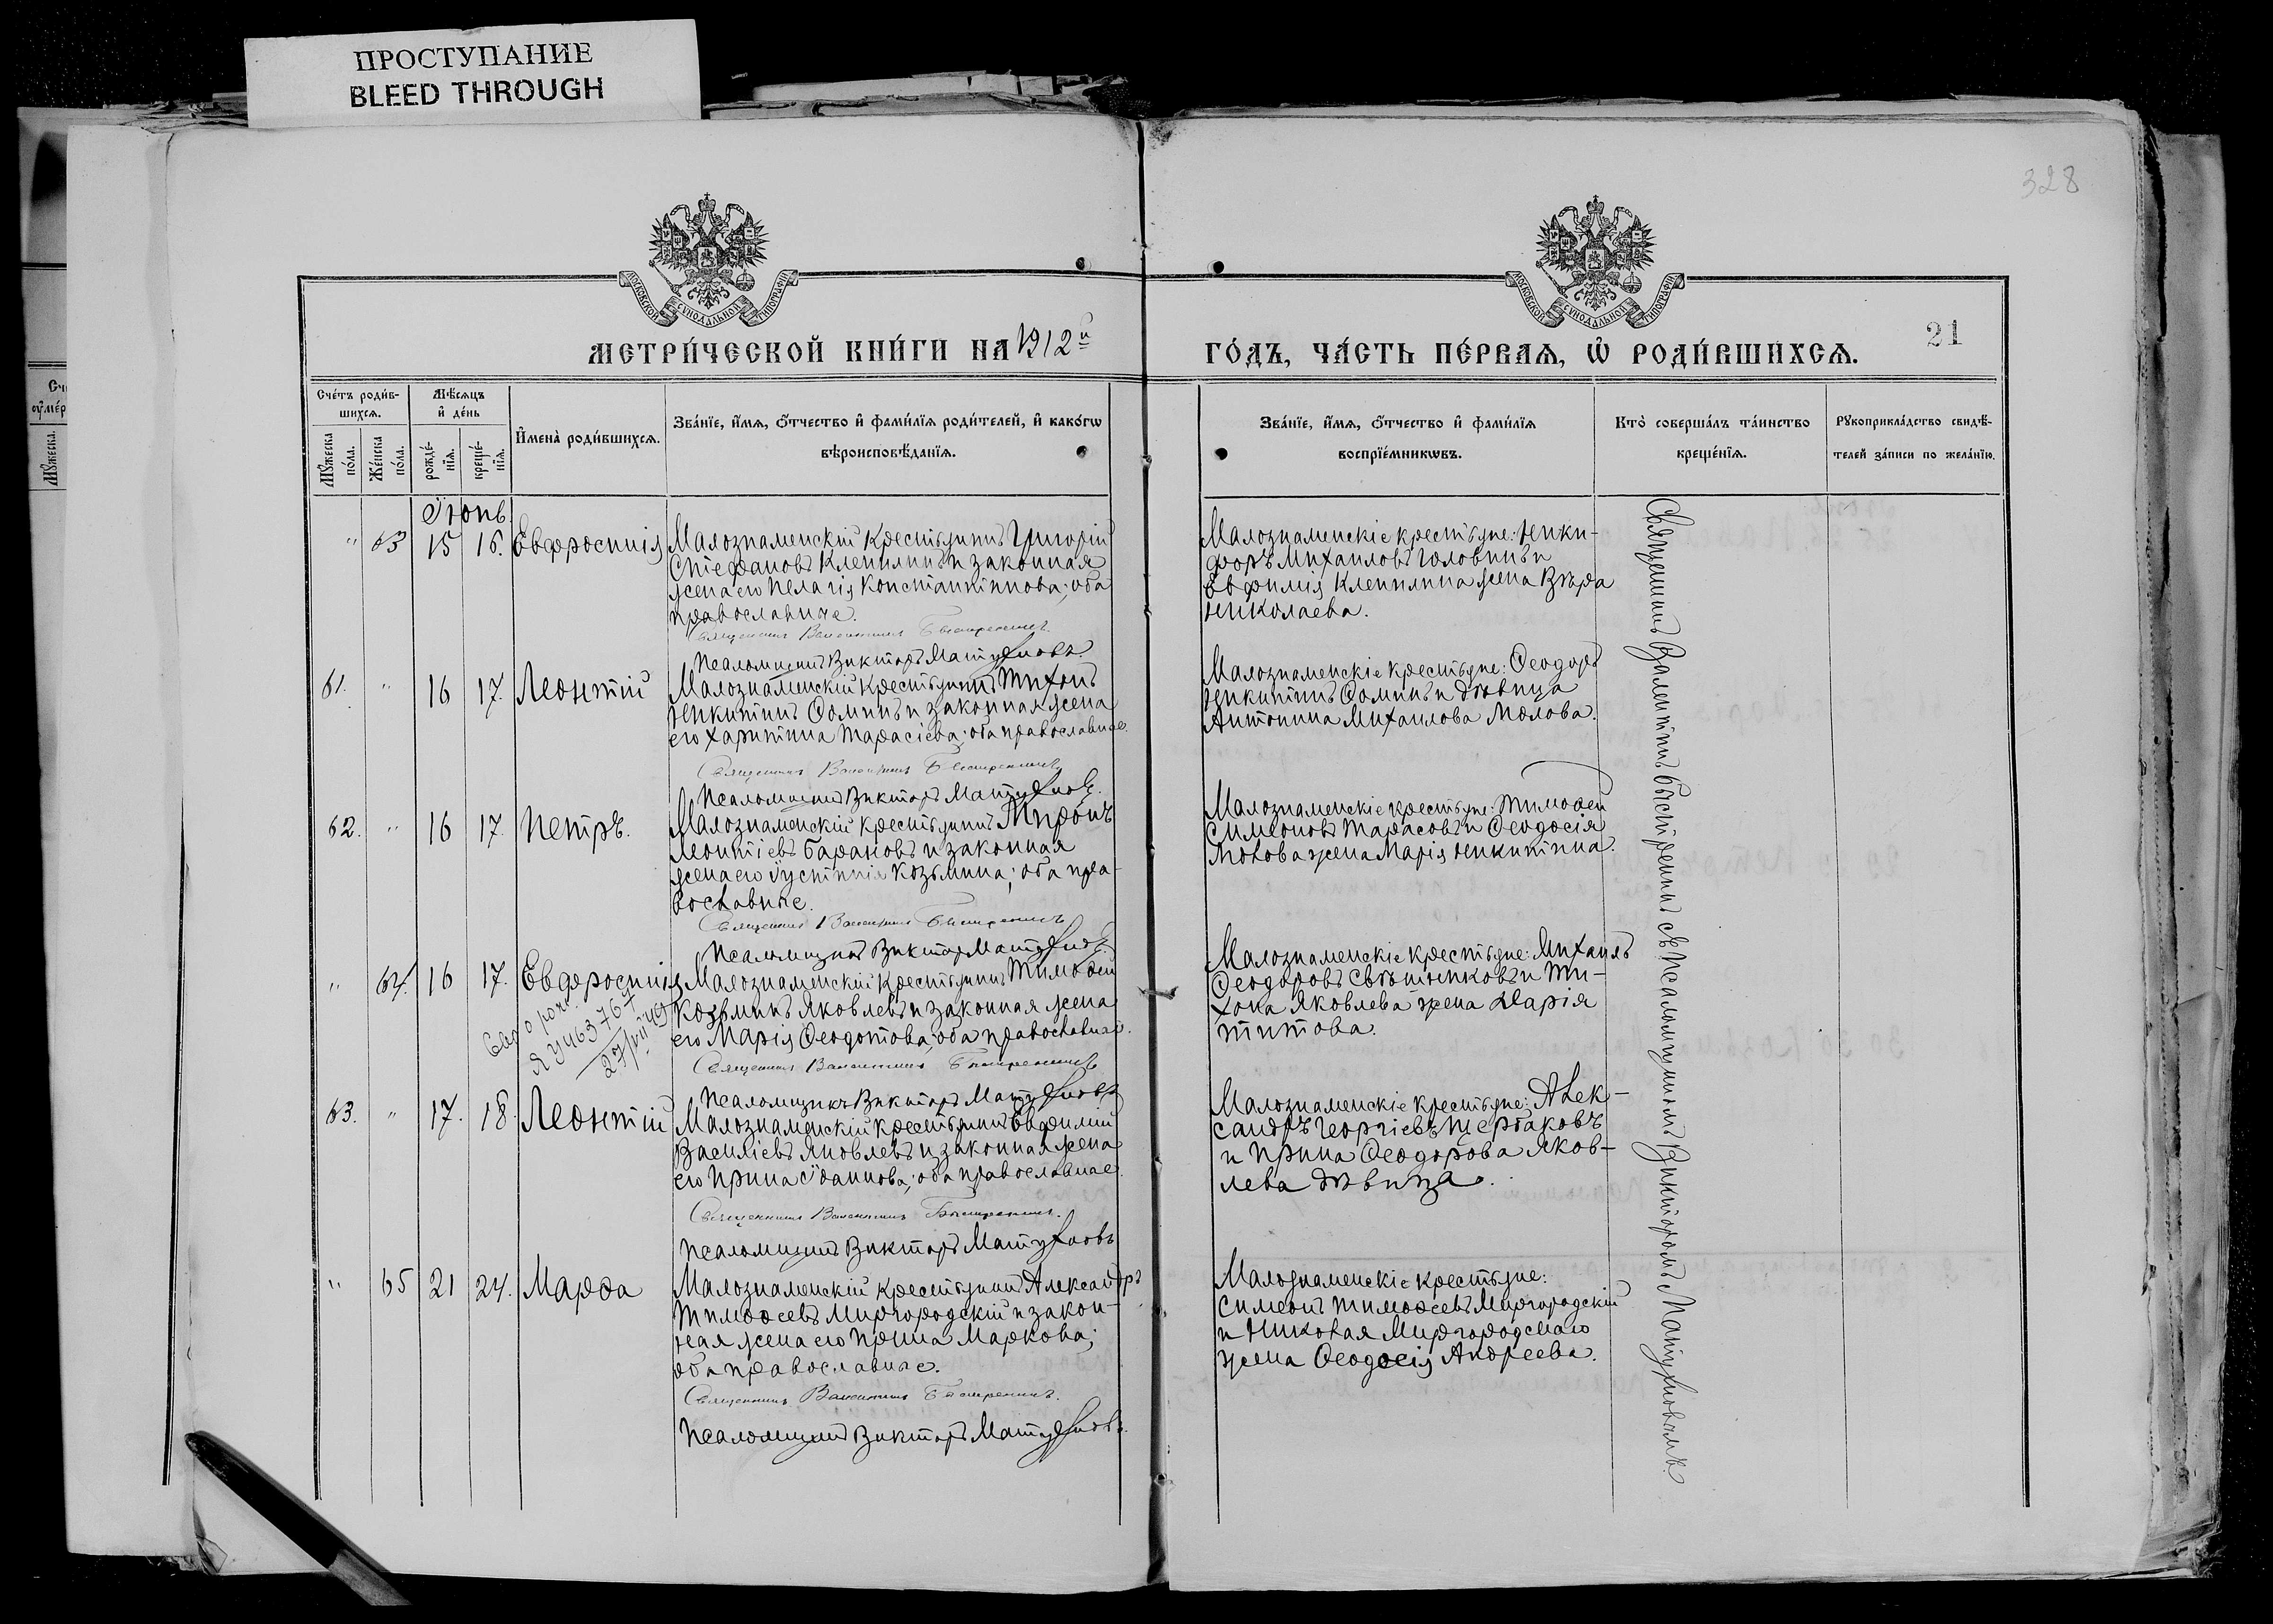 ПРОСТУПАНИЕ
BLEED THROUGH
328
МОСКОВСКОЙ СѴНОДАЛЬНОЙ ТИПОГРАФІИ
МОСКОВСКОЙ СѴНОДАЛЬНОЙ ТИПОГРАФІИ
МЕТРИ́ЧЕСКОЙ КНИ́ГИ НА 1912й
ГО́ДЪ, ЧА́СТЬ ПЕ́РВАѦ, Ѡ҆ РОДИ́ВШИХСѦ.
21
Сче́тъ роди́в-
шихсѧ.
Мꙋ́жеска по́ла.
Же́нска по́ла.
Мѣ́сѧцъ
и҆ де́нь
рожде́-
нїѧ.
креще́-
нїѧ.
И҆мена̀ роди́вшихсѧ.
Зва́нїе, и҆́мѧ, о҆́тчество и҆ фами́лїѧ роди́телей, и҆ како́гѡ
вѣроисповѣ́данїѧ.
Зва́нїе, и҆́мѧ, о҆́тчество и҆ фами́лїѧ
воспрїе́мникѡвъ.
Кто̀ соверша́лъ та́инство
креще́нїѧ.
Рꙋкоприкла́дство свидѣ́-
телей за́писи по жела́нїю.
Іюнь
" 63 15 16. Евфросинія
Малознаменскій крестьянинъ Григорій
Стефановъ Клепининъ и законная
жена его Пелагія Константинова; оба
православные.
Священникъ Валентинъ Быстренинъ.
Псаломщикъ Викторъ Матухновъ.
Малознаменскіе крестьяне: Ники-
форъ Михаиловъ Головинъ и
Евфимія Клепинина жена Вѣра
Николаева.
61. " 16 17. Леонтій
Малознаменскій крестьянинъ Тихонъ
Никитинъ Ѳоминъ и законная жена
его Харитина Тарасіева; оба православные.
Священникъ Валентинъ Быстренинъ
Псаломщикъ Викторъ Матухновъ.
Малознаменскіе крестьяне: Ѳеодоръ
Никитинъ Ѳоминъ и дѣвица
Антонина Михаилова Молова.
62. " 16 17. Петръ.
Малознаменскій крестьянинъ Миронъ
Леонтіевъ Барановъ и законная
жена его Іустинія Козьмина; оба пра-
вославные.
Священникъ Валентинъ Быстренинъ
Псаломщикъ Викторъ Матухновъ.
Малознаменскіе крестьяне: Тимоѳей
Симеоновъ Тарасовъ и Ѳеодосія
жена Марія Никитина.
" 64. 16 17. Евфросинія
27/VII 49
Малознаменскій крестьянинъ Тимоѳей
Козьминъ Яковлевъ и законная жена
его Марія Ѳеодотова; оба православные.
Священникъ Валентинъ Быстренинъ
Псаломщикъ Викторъ Матухновъ
Малознаменскіе крестьяне: Михаилъ
Ѳеодоровъ Свѣтниковъ и Ти-
хона Яковлева жена Дарія
Титова.
63. " 17. 18. Леонтій
Малознаменскій крестьянинъ Евфимій
Василіевъ Яковлевъ и законная жена
его Ирина Іоаннова; оба православные.
Священникъ Валентинъ Быстренинъ.
Псаломщикъ Викторъ Матухновъ
Малознаменскіе крестьяне: Алек-
сандръ Георгіевъ Щербаковъ
и Ирина Ѳеодорова Яков-
лева дѣвица.
" 65 21 24. Марѳа
Малознаменскій крестьянинъ Александръ
Тимоѳеевъ Миргородскій и закон-
ная жена его Ирина Маркова;
оба православные.
Священникъ Валентинъ Быстренинъ.
Псаломщикъ Викторъ Матухновъ.
Малознаменскіе крестьяне:
Симеонъ Тимоѳеевъ Миргородскій
и Николая Миргородскаго
жена Ѳеодосія Андреева.
Священникъ Валентинъ Быстренинъ съ псаломщикомъ Викторомъ Матухновымъ.